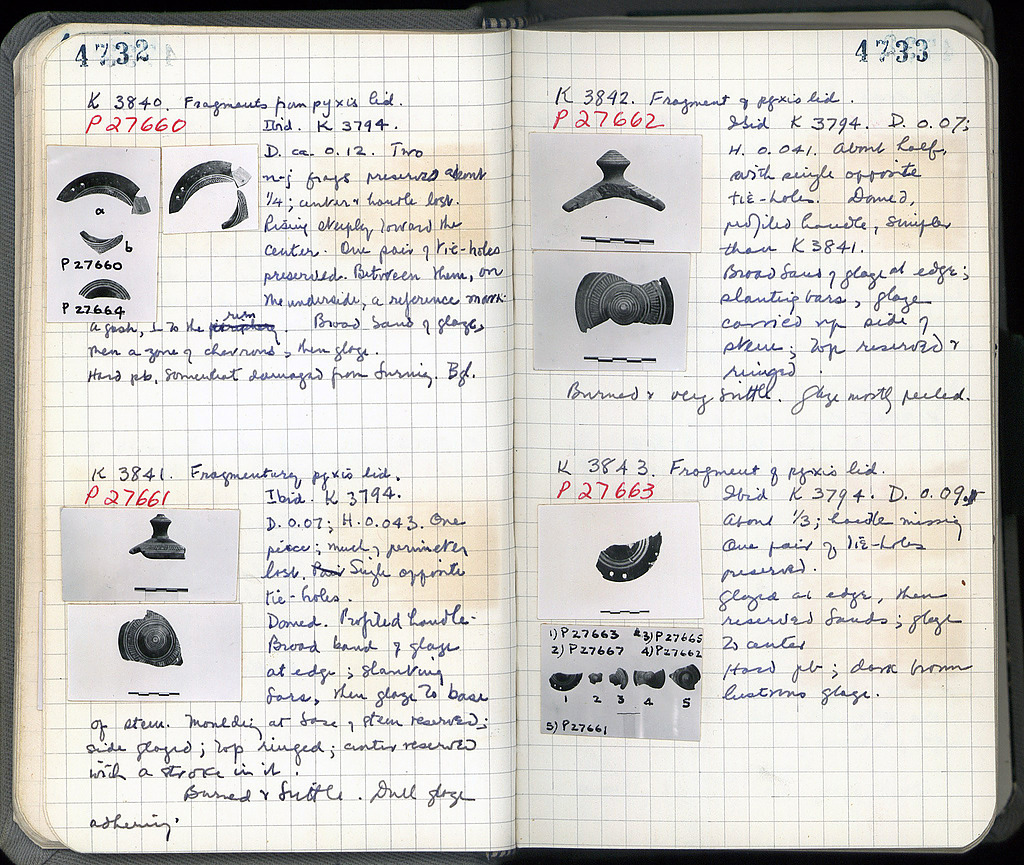 4732
K 3840. Fragments from pyxis lid.
P 27660
Ibid. K 3794.
D. ca. 0.12. Two
n-j frags preserved about
1/4; center & handle lost.
Rising steeply toward the
center. One pair of tie-holes
preserved. Between them, on
the underside, a reference mark:
a gash, ⊥ to the periphery rim. Broad band of glaze,
then a zone of chevrons, then glaze.
Hard pb, somewhat damaged from burning. Bgl.
a
b
P 27660
P 27664
K 3841. Fragmentary pyxis lid.
P 27661
Ibid. K 3794.
D. 0.07; H. 0.043. One
piece; much of perimeter
lost. Pair Single opposite
tie-holes.
Domed. Profiled handle.
Broad band of glaze
at edge; slanting
bars, then glaze to base
of stem. Moulding at base of stem reserved;
side glazed; top ringed; center reserved
with a stroke in it.
Burned & brittle. Dull glaze
adhering.
4733
K 3842. Fragment of pyxis lid.
P 27662
Ibid K 3794. D. 0.07;
H. 0.041. About half,
with single opposite
tie-holes. Domed,
profiled handle, simpler
than K 3841.
Broad band of glaze at edge;
slanting bars, glaze
carried up side of
stem; top reserved &
ringed.
Burned & very brittle. Glaze mostly peeled.
K 3843. Fragment of pyxis lid.
P 27663
Ibid K 3794. D. 0.09.
About 1/3; handle missing
One pair of tie-holes
preserved.
Glazed at edge, then
reserved bands; glaze
to center
Hard pb; dark brown
lustrous glaze.
1) P 27663 3) P 27665
2) P 27667 4) P 27662
1 2 3 4 5
5) P 27661